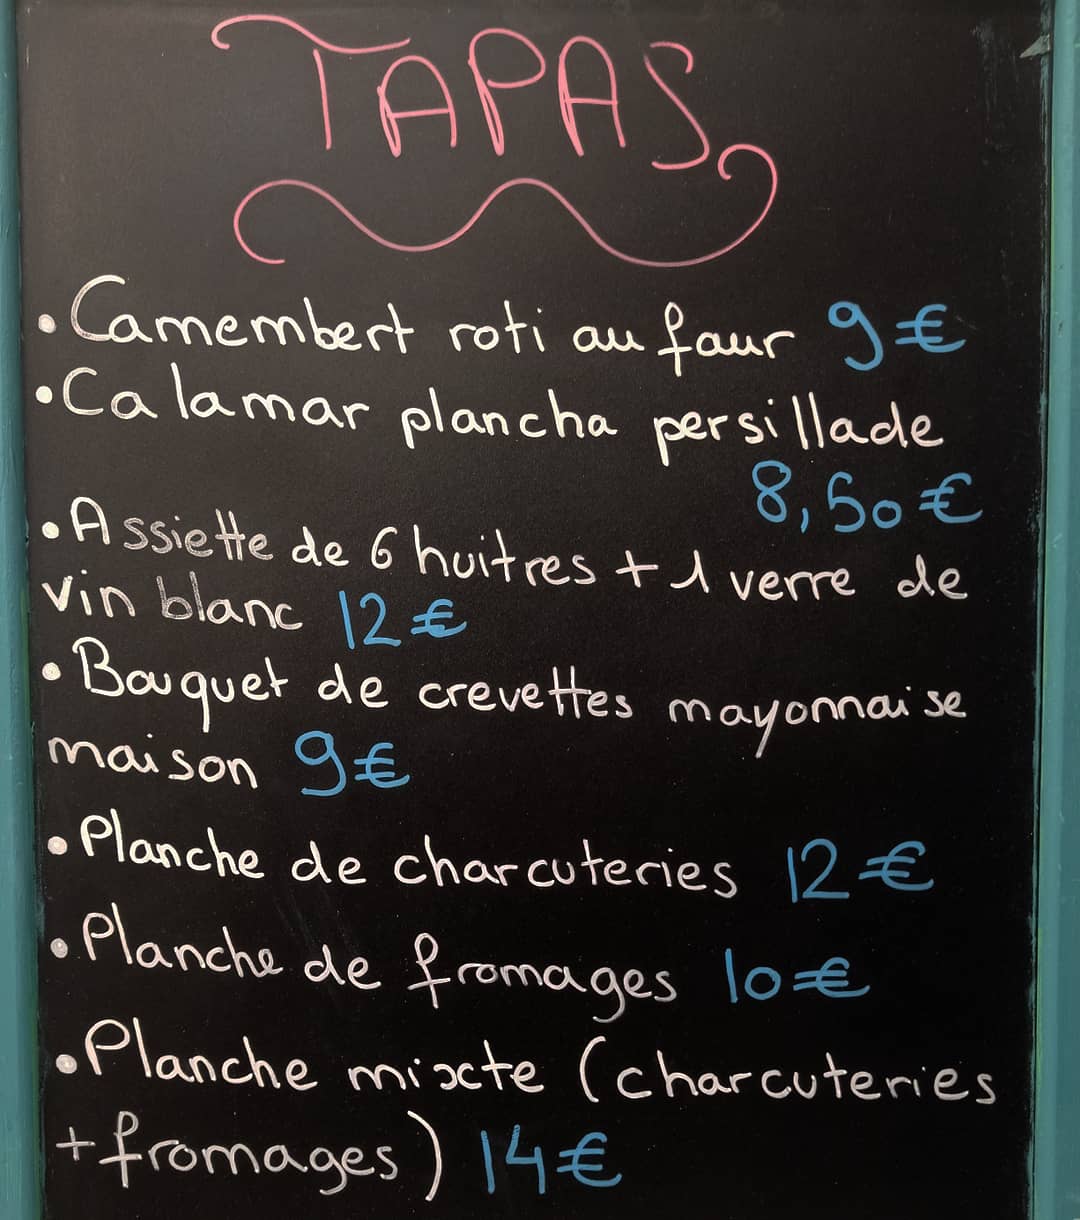 TAPAS
• Camembert roti au faur 9€
• Calamar plancha persillade
8,50€
• Assiette de 6 huitres + 1 verre de
vin blanc 12€
• Bouquet de crevettes mayonnaise
maison 9€
• Planche de charcuteries 12€
• Planche de fromages 10€
• Planche mixte (charcuteries
+ fromages) 14€